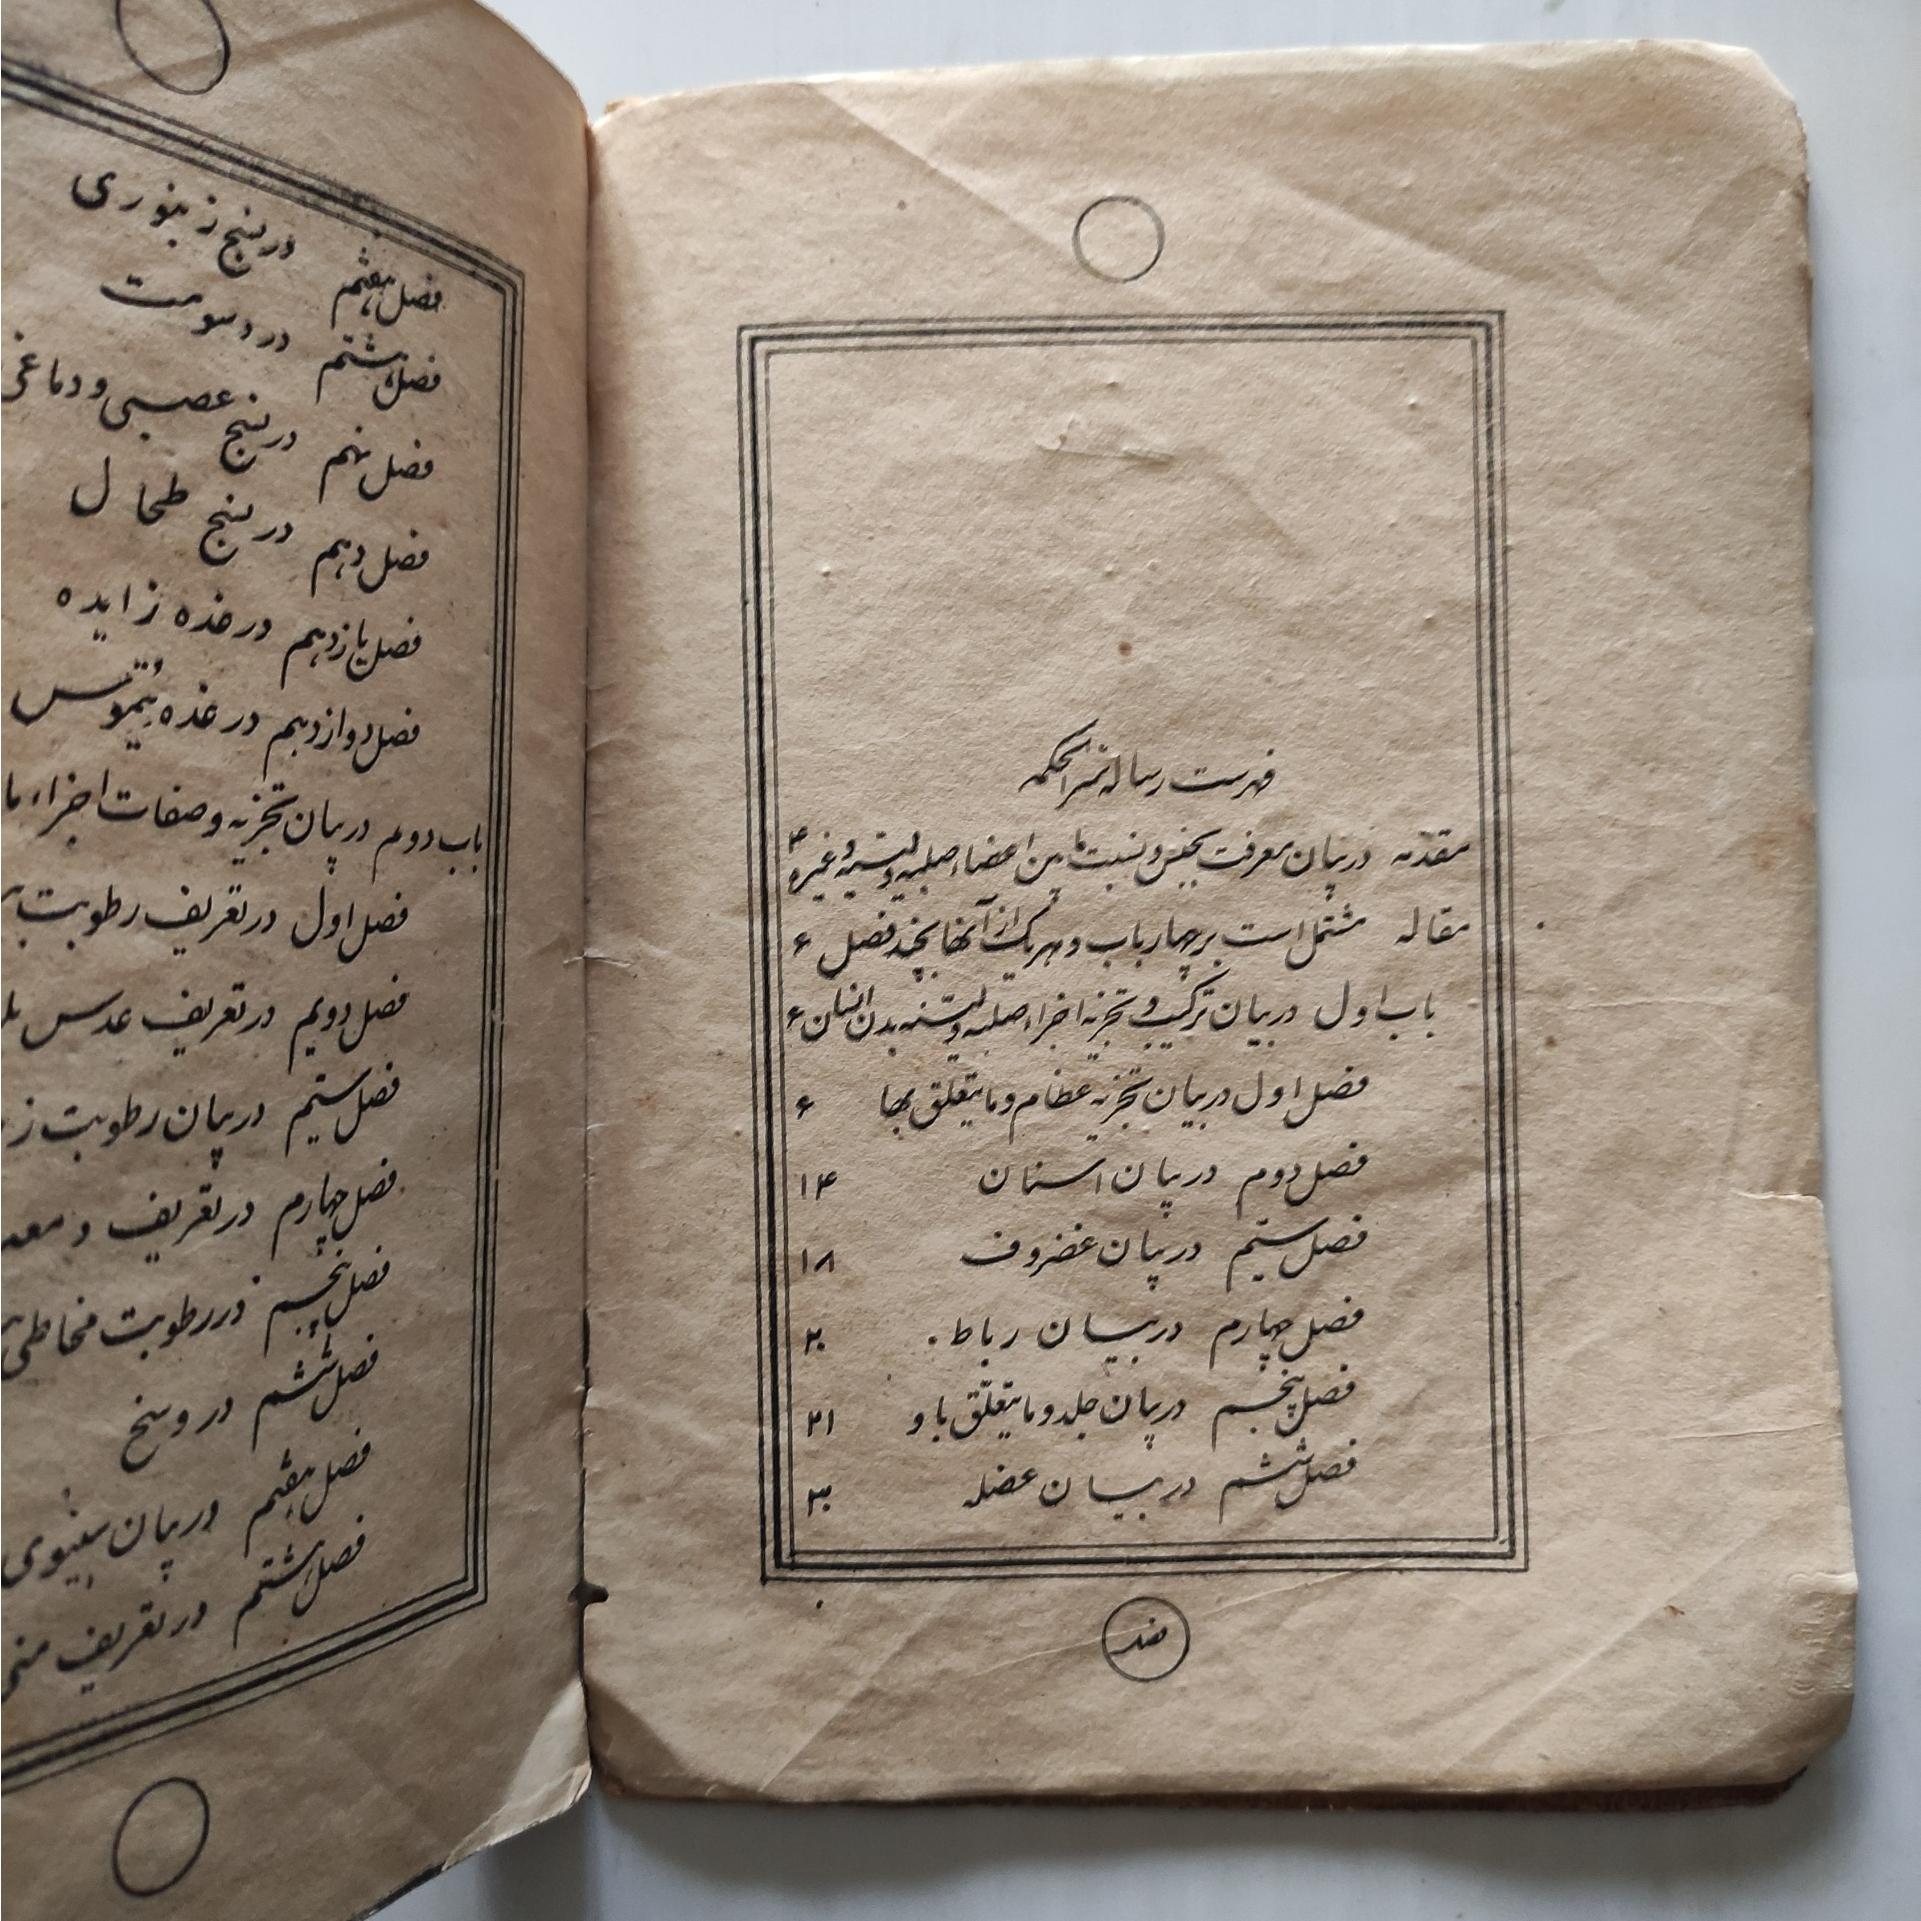 فهرست رساله ثمر الحکمه
مقدمه در بیان معرفت جنس و نسبت مابین اعضاء اصلیه و لینیه و غیره ۴
مقاله مشتمل است بر چهار باب و هر یک از آنها بچند فصل ۶
باب اول در بیان ترکیب و تجزیه اجزاء صلبه و لینه بدن انسان ۶
فصل اول در بیان تجزیه عظام و ما یتعلق بها ۶
فصل دوم در بیان اسنان ۱۴
فصل سیم در بیان غضروف ۱۸
فصل چهارم در بیان رباط ۲۰
فصل پنجم در بیان جلد و ما یتعلّق باو ۲۱
فصل ششم در بیان عضله ۳۰
فصل هفتم در نسج زنبوری
فصل هشتم در دسومت
فصل نهم در نسج عصبی و دماغی
فصل دهم در نسج طحال
فصل یازدهم در غده زایده
فصل دوازدهم در غده ثیموس
باب دوم در بیان تجزیه و صفات اجزاء
فصل اول در تعریف رطوبت
فصل دویم در تعریف عدس
فصل سیم در بیان رطوبت
فصل چهارم در تعریف و
فصل پنجم در رطوبت مخاطی
فصل ششم در وسخ
فصل هفتم در بیان
فصل هشتم در تعریف